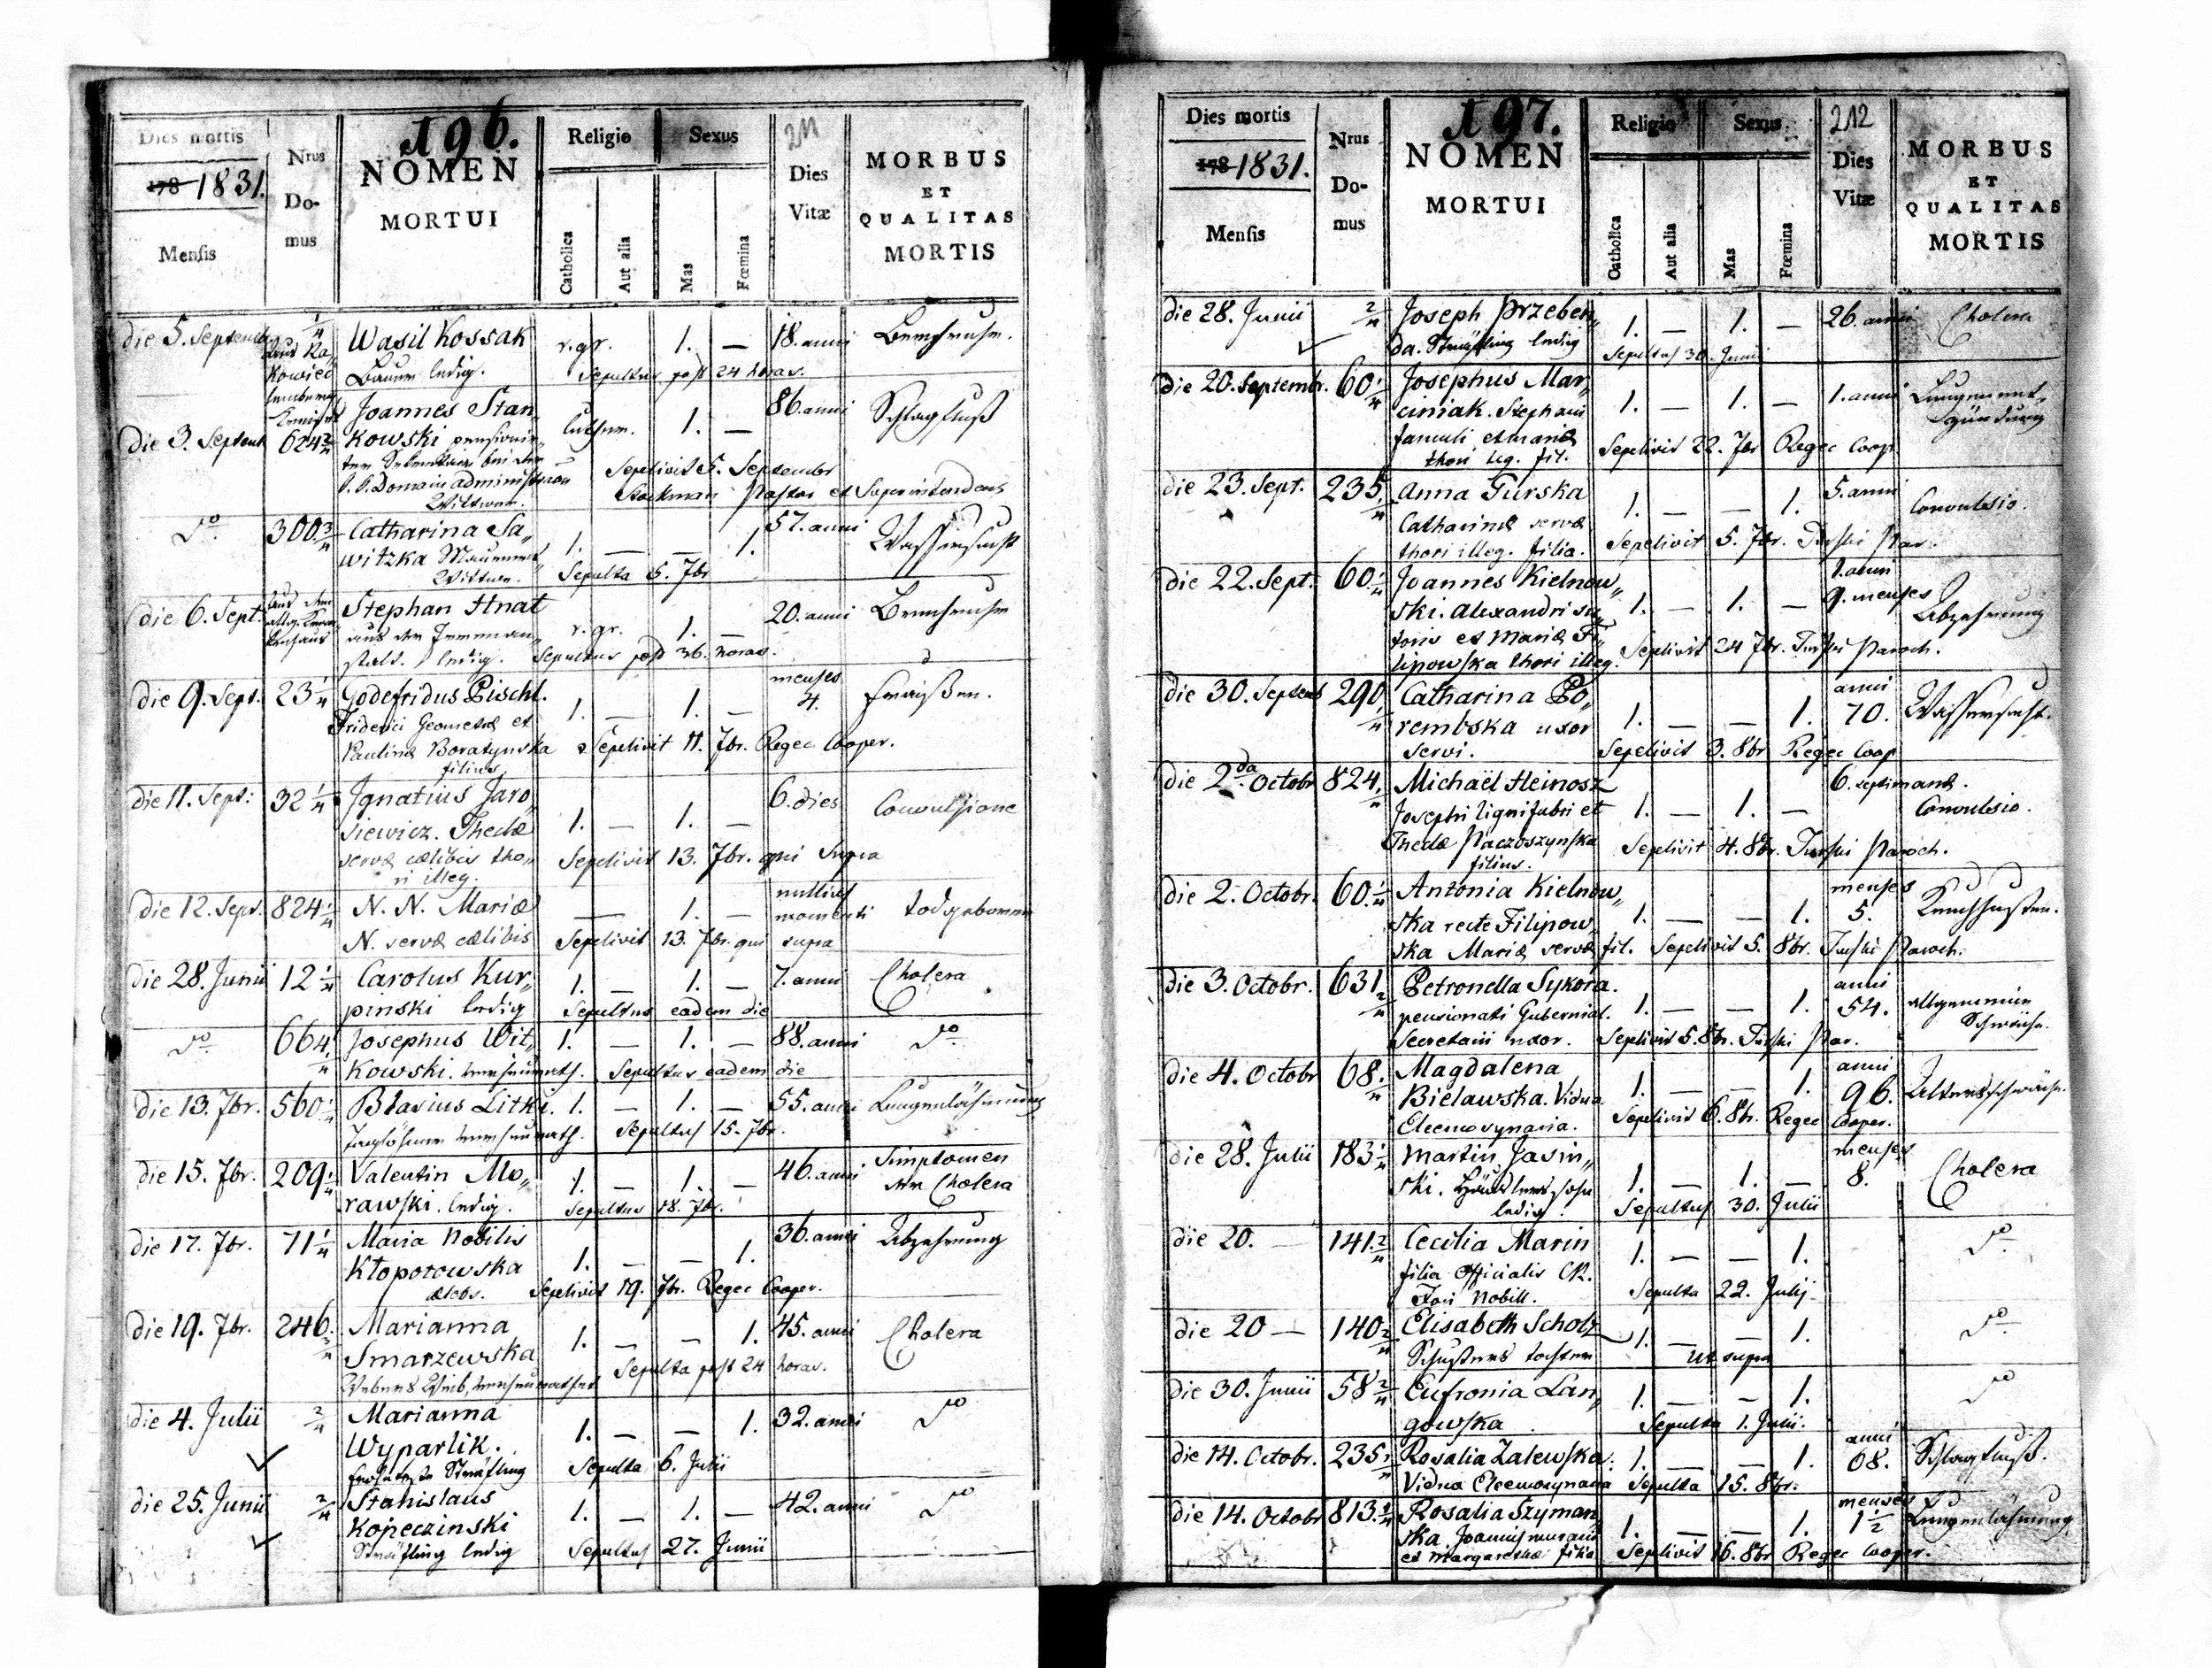 196.
211
Dies mortis
178 1831.
Mensis
Nrus
Do-
mus
NOMEN
MORTUI
Religio
Catholica
Aut alia
Sexus
Mas
Fœmina
Dies
Vitæ
MORBUS
ET
QUALITAS
MORTIS
die 5. Septemb. Wasil Kossak r.gr. 1. — 18. anni
Bauer ledig. Sepultus post 24 horas.
die 3. Septemb 624 2/4 Joannes Stan„ Luthera. 1. — 86. anni Schlagfluß
kowski pensionir„
ter Sekretair bei der
Domain administration
Wittwer.
Sepelivit 5. Septembr
Stockman Pastor et Superintendens
do 300 3/4 Catharina Sa„ 1. — — 1. 57. anni Wassersucht
witzka
Wittwe. Sepulta 5. 7br
die 6. Sept. Stephan Hnat r. gr. 1. — 20. anni
aus der Irrenan„
stalt. ledig. Sepultus post 36. horas.
die 9. Sept. 23 1/4 Godefridus Pischl. 1. — 1. — menses 4. Fraißen.
Friderici Geometræ et
Paulinæ Boratynska
filius.
Sepelivit 11. 7br. Regec Cooper.
die 11. Sept: 32 1/4 Ignatius Jaro„ 1. — 1. — 6. dies Convulsione
siewicz. Theclæ
servæ cælibis tho„
ri illeg. Sepelivit 13. 7br. qui supra
die 12. Sept. 824 1/4 N. N. Mariæ — 1. — nullius momenti todgeboren
N. servæ cælibis Sepelivit 13. 7br. qui supra
die 28. Junii 12 1/4 Carolus Kur„ 1. — 1. — 7. anni Cholera
pinski ledig Sepultus eadem die
do 664 Josephus Wit„ 1. — 1. — 88. anni do
kowski. verheurath. Sepultus eadem die
die 13. 7br. 560 1/4 Blasius Litki. 1. — 1. — 55. anni Lungenlähmung
Taglöhner verheurath. Sepultus 15. 7br.
die 15. 7br. 209 1/4 Valentin Mo„ 1. — 1. — 46. anni Simptomen
der Cholera
rawski. ledig. Sepultus 18. 7br.
die 17. 7br. 71 1/4 Maria Nobilis 1. — — 1. 36. anni Abzehrung
Kłopotowska
Sepelivit 19. 7br. Regec Cooper.
die 19. 7br. 246. 2/4 Marianna 1. — — 1. 45. anni Cholera
Smarzewska
Webers Weib, verheurathet Sepulta post 24 horas.
die 4. Julii 2/4 Marianna 1. — — 1. 32. anni do
Wyparlik.
Sträfling Sepulta 6. Julii
die 25. Junii 2/4 Stanislaus 1. — 1. — 42. anni do
Kopeczinski
Sträfling ledig Sepultus 27. Junii
197.
212
Dies mortis
178 1831.
Mensis
Nrus
Do-
mus
NOMEN
MORTUI
Religio
Catholica
Aut alia
Sexus
Mas
Fœmina
Dies
Vitæ
MORBUS
ET
QUALITAS
MORTIS
die 28. Junii 2/4 Joseph Przeben„ 1. — 1. — 26. anni Cholera
da. Sträfling ledig Sepultus 30. Junii
die 20. Septembr. 60 1/4 Josephus Mar„ 1. — 1. — 1. anni Lungenent„
zündung
ciniak. Stephani
famuli et Mariæ
thori leg. fil. Sepelivit 22. 7br Regec Coop
die 23. Sept. 235 1/4 Anna Turska 1. — — 1. 5. anni Convulsio.
Catharinæ servæ
thori illeg. filia. Sepelivit 5. 7br. Turski Par.
die 22. Sept. 60 1/4 Joannes Kielnow„ 1. — 1. — 1. anni
9. menses Abzehrung
ski. Alexandri su„
toris et Mariæ Fi„
lipowska thori illeg. Sepelivit 24 7br. Turski Paroch.
die 30. Septemb 290 1/4 Catharina Po„ 1. — — 1. anni 70. Wassersucht.
rembska uxor
servi. Sepelivit 3. 8br Regec Coop
die 2da Octobr 824 1/4 Michaël Heinosz 1. — 1. — 6. septimanæ. Convulsio.
Josephi lignifabri et
Theclæ Paczoszynska
filius. Sepelivit 4. 8br. Turski Paroch.
die 2. Octobr. 60 1/4 Antonia Kielnow„ 1. — — 1. menses 5. Keuchhusten.
ska recte Filipow„
ska Mariæ servæ fil. Sepelivit 5. 8br. Turski Paroch.
die 3. Octobr. 631 2/4 Petronella Sykora. 1. — — 1. anni 54. allgemeine
Schwäche.
pensionati Gubernial.
Secretarii uxor. Sepelivit 5. 8br. Turski Par.
die 4. Octobr 68. 1/4 Magdalena 1. — — 1. anni 96. Altersschwäche.
Bielawska. Vidua
Eleemosynaria. Sepelivit 6. 8br. Regec Cooper.
die 28. Julii 183 1/4 Martin Jasin„ 1. — 1. — menses 8. Cholera
ski.
ledig. Sepultus 30. Julii
die 20. — 141. 2/4 Cecilia Marin 1. — — 1. do
filia Officialis CR.
Fori Nobill. Sepulta 22. Julij
die 20 — 140 2/4 Elisabeth Scholz 1. — — 1. do
Schusters tochter ut supra
die 30. Junii 58 2/4 Eufronia Lan„ 1. — — 1. do
gowska Sepulta 1. Julii.
die 14. Octobr. 235 1/4 Rosalia Zalewska. 1. — — 1. anni 68. Schlagfluß.
Vidua Eleemosynaria Sepulta 15. 8br.
die 14. Octobr 813. 1/4 Rosalia Szyman„ 1. — — 1. menses 1 1/2 Lungenlähmung
ska Joannis murarii
et Margarethæ filia Sepelivit 16. 8br Regec Cooper.